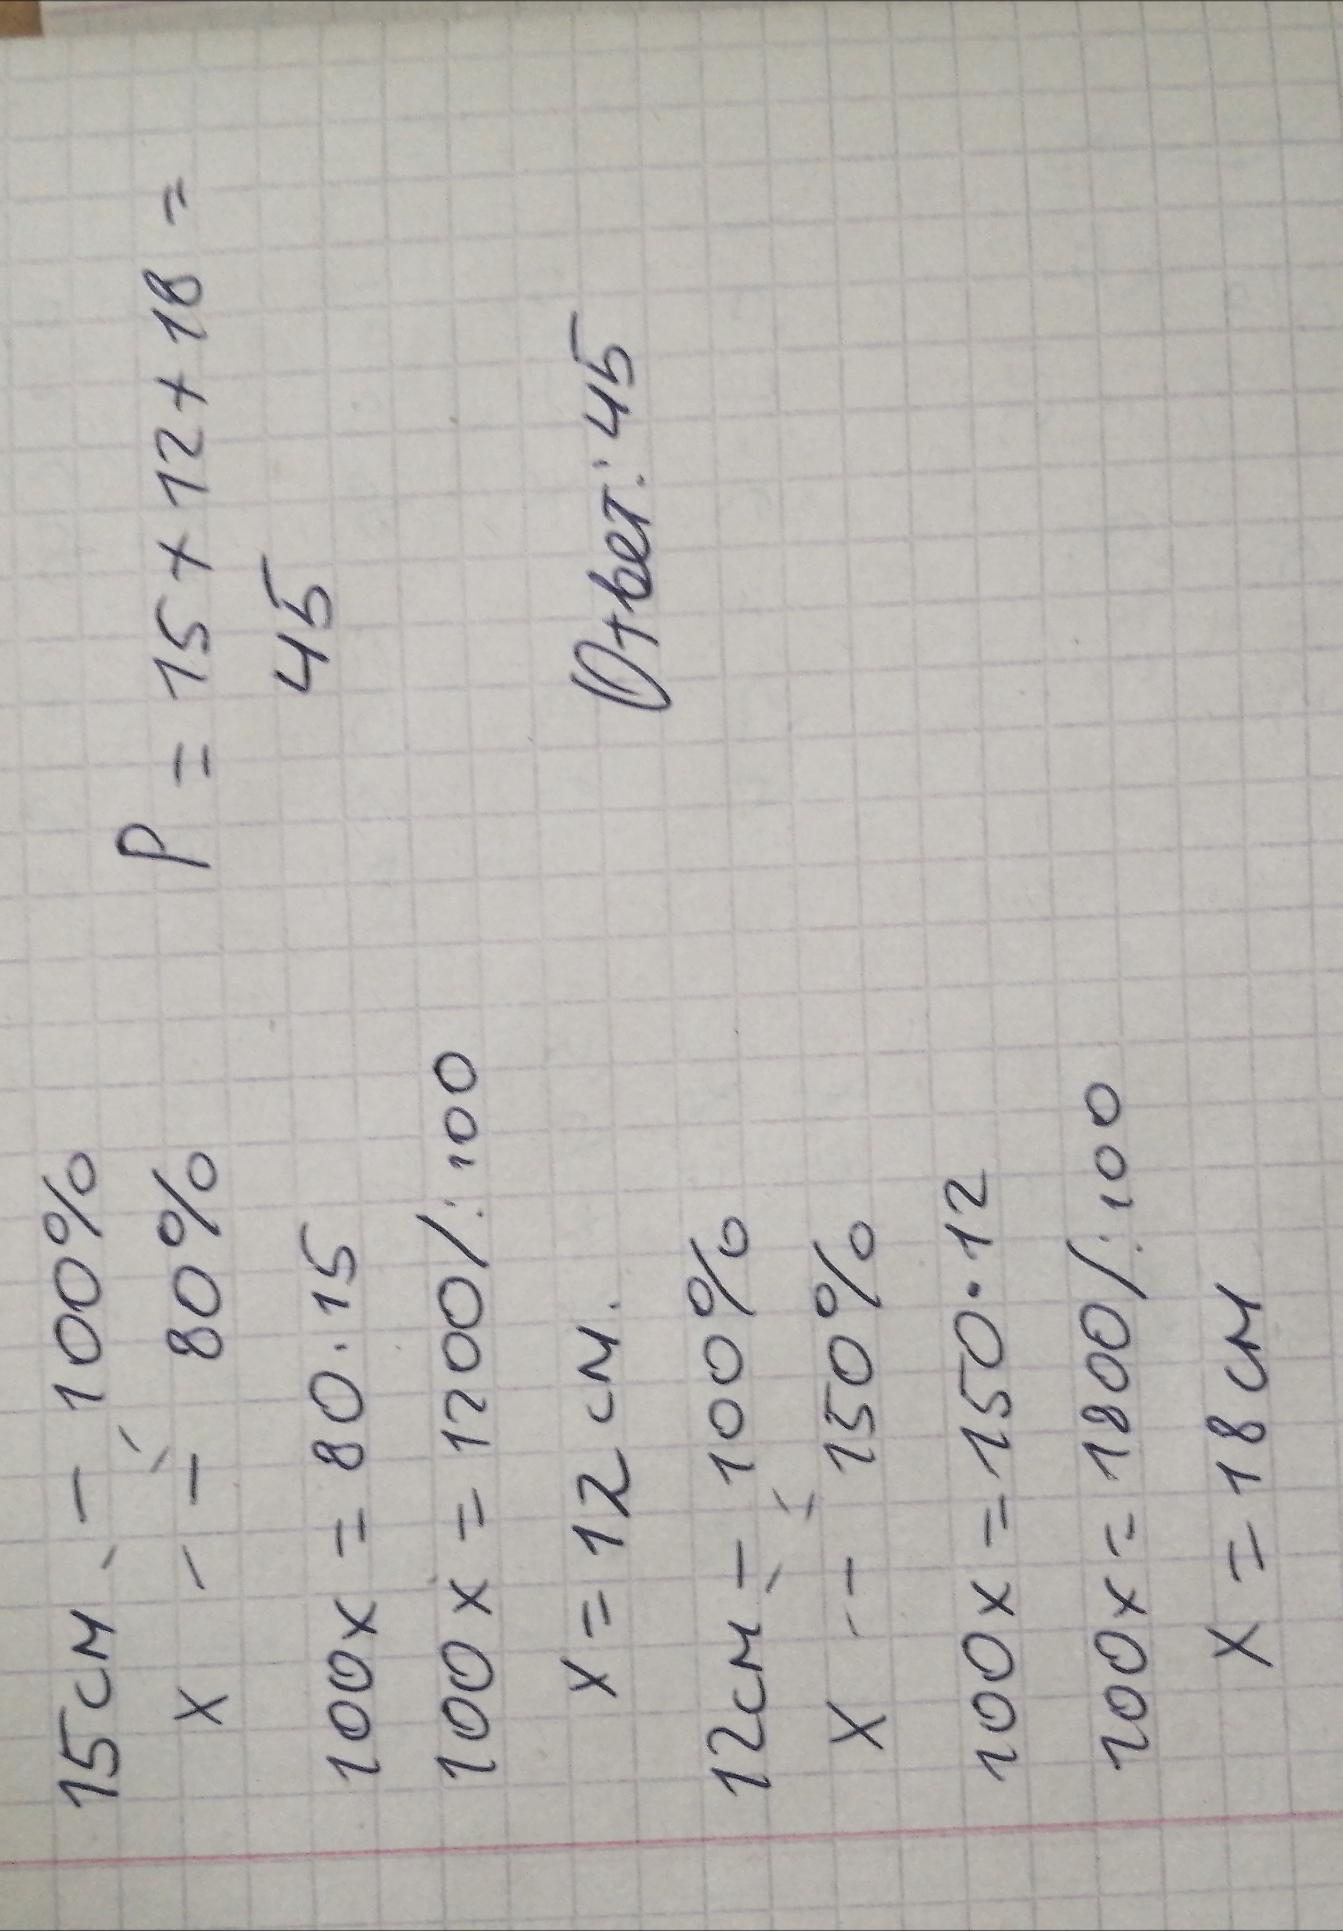 15см - 100%
х - 80%
100х = 80·15
100х = 1200/:100
х = 12 см.
12см - 100%
х -- 150%
100х = 150·12
100х = 1800/:100
х = 18 см
Р = 15 + 12 + 18 =
45
Ответ: 45